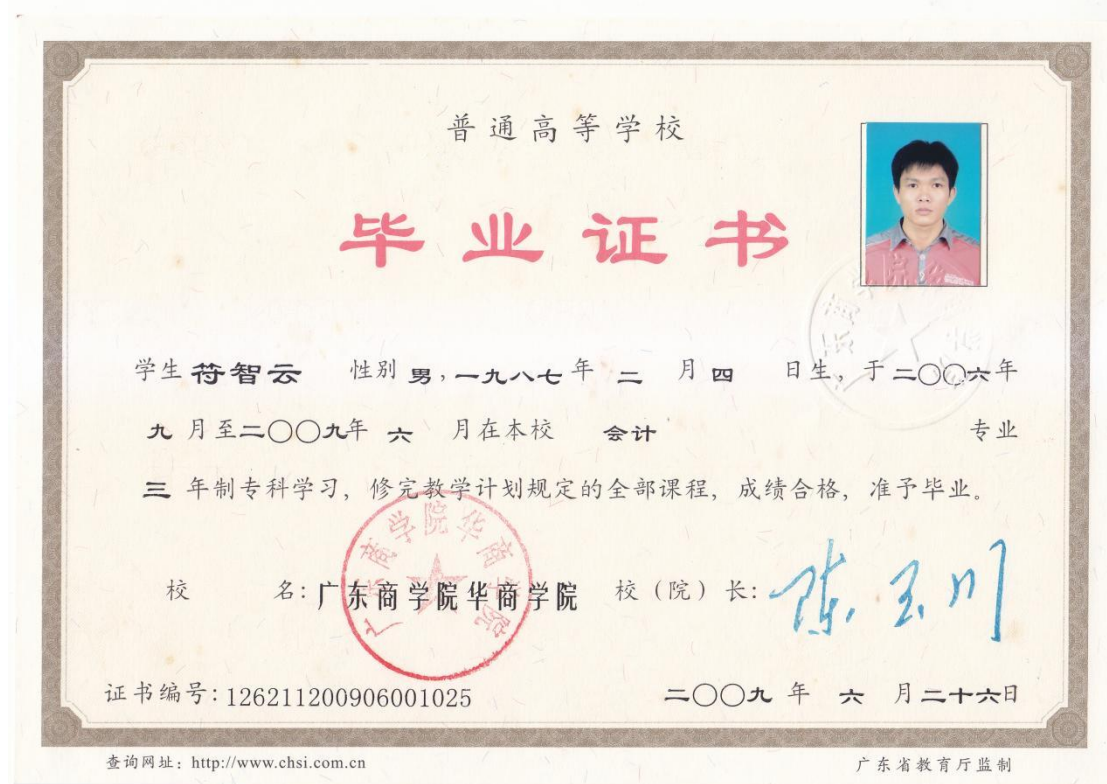 普通高等学校
毕业证书
学生 符智云 性别 男，一九八七年 二 月 四 日生，于二〇〇六年
九 月至二〇〇九年 六 月在本校 会计 专业
三 年制专科学习，修完教学计划规定的全部课程，成绩合格，准予毕业。
广东商学院华商学院
校 名：广东商学院华商学院 校（院）长：陈玉川
证书编号：126211200906001025 二〇〇九 年 六 月二十六日
查询网址：http://www.chsi.com.cn 广东省教育厅监制